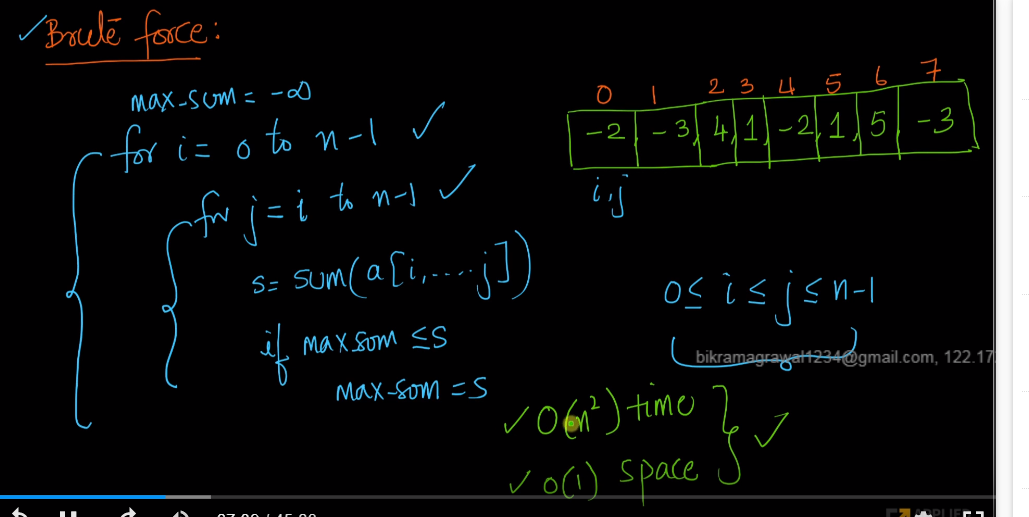 ✓ Brute force:
max-sum = -∞
for i = 0 to n-1 ✓
for j = i to n-1 ✓
s = sum(a[i,....j])
if maxsum ≤ s
max-sum = s
0 1 2 3 4 5 6 7
-2, -3, 4, 1, -2, 1, 5, -3
i,j
0 ≤ i ≤ j ≤ n-1
bikramagrawal1234@gmail.com, 122.17
✓ O(n²) time
✓ O(1) space
✓